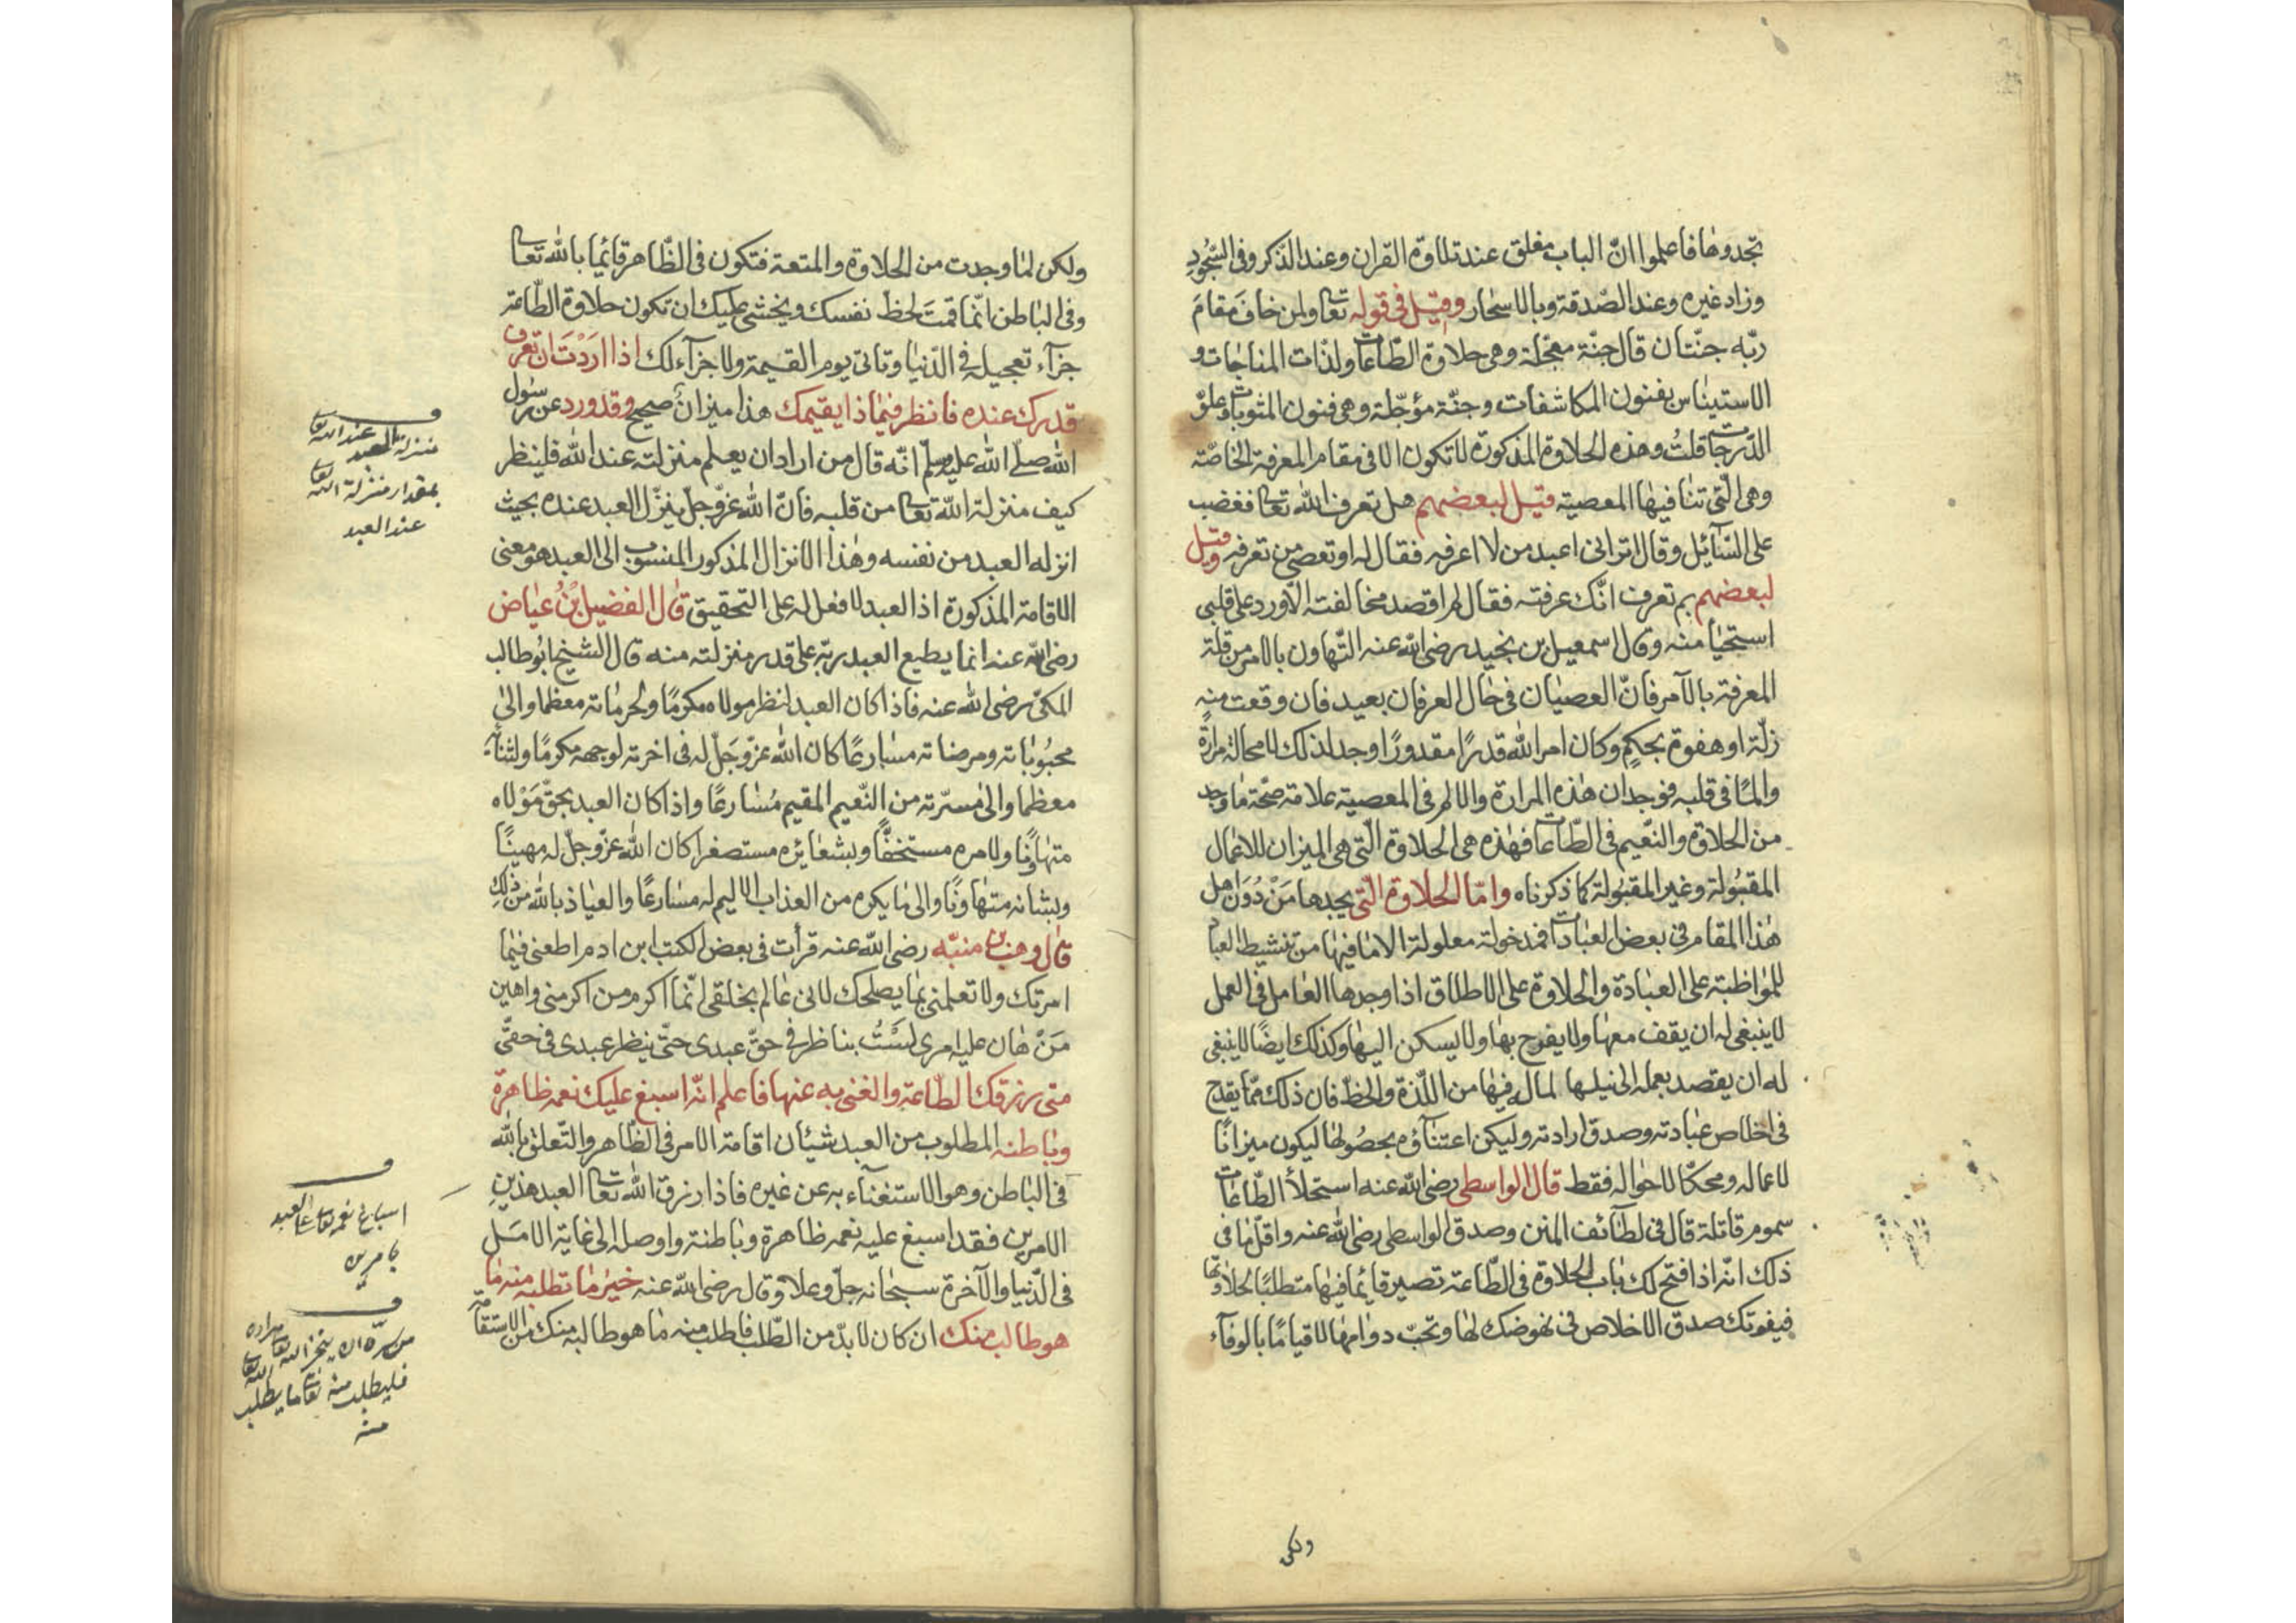 تجدوها فاعلموا انّ الباب مغلق عند تلاوة القران وعند الذكر وفى السّجُودِ
وزاد غيره وعند الصّدقة وبالاسحار وقيل فى قوله تعا ولمن خافَ مقامَ
ربّه جنّتان قال جنّة معجّلة وهى حلاوة الطّاعات ولذّات المناجات و
الاستيناس بفنون المكاشفات وجنّة مؤجّلة وهى فنون المثوبات وعلوّ
الدّرجات قلتُ وهذه الحلاوة المذكورة لا تكون الا فى مقام المعرفة الخاصّة
وهى الّتى تنافيها المعصية قيل لبعضهم هل تعرف الله تعا فغضب
على السّآئل وقال اترانى اعبد من لا اعرفه فقال له اوتعصى من تعرفه وقيل
لبعضهم بم تعرف انّك عرفته فقال لم اقصد مخالفته الّا ورد على قلبى
استحيآ منه وقال اسمعيل بن نجيد رضى الله عنه التّهاون بالامر من قلة
المعرفة بالآمر فانّ العصيان فى حال العرفان بعيد فان وقعت منه
زلّة او هفوة بحكمٍ وكان امر الله قدرًا مقدورًا وجد لذلك لا محالة مرارةً
والمًا فى قلبه فوجدان هذه المرارة والالم فى المعصية علامة صحّة ما وجد
من الحلاوة والنّعيم فى الطّاعات فهذه هى الحلاوة الّتى هى الميزان للاعمال
المقبُولة وغير المقبُولة كما ذكرناه وامّا الحلاوة الّتى يجدها مَنْ دُوَن اهل
هذا المقام فى بعض العبادات فمدخولة معلولة الا ما فيها من تنشيط العباد
للمواظبة على العبادة والحلاوة على الاطلاق اذا وجدها العامل فى العمل
لا ينبغى له ان يقف معها ولا يفرح بها ولا يسكن اليها وكذلك ايضًا لا ينبغى
له ان يقصد بعمله الى نيلها لماله فيها من اللّذة والحظّ فان ذلك ممّا يقدح
فى اخلاص عبادته وصدق ارادته وليكن اعتنآؤه بحصُولها ليكون ميزانًا
لاعماله ومحكّا لاحواله فقط قال الواسطى رضى الله عنه استحلآ الطّاعات
سموم قاتلة قال فى لطآئف المنن وصدق الواسطى رضى الله عنه واقلّ ما فى
ذلك انّه اذا فتح لك باب الحلاوة فى الطّاعة تصير قايمًا فيها متطلبًا لحلاوتها
فيفوتك صدق الاخلاص فى نهوضك لها وتحبّ دوامها لا قيامًا بالوفآء
ولكن
ولكن لما وجدت من الحلاوة والمتعة فتكون فى الظّاهر قائمًا بالله تعا
وفى الباطن انّما قمتَ لحظّ نفسك ويخشى عليك ان تكون حلاوة الطّاعة
جزآء تعجيله فى الدّنيا وتاتى يوم القيمة ولا جزآء لك اذا ارَدْتَ ان تعرف
قدرك عنده فانظر فيما ذا يقيمك هذا ميزانٌ صحيح وقد ورد عن رسول
الله صلّى الله عليه وسلم انّه قال من اراد ان يعلم منزلته عند الله فلينظر
كيف منزلة الله تعا من قلبه فانّ الله عزّ وجلّ ينزّل العبد عنده بحيث
انزله العبد من نفسه وهذا الانزال المذكور المنسوب الى العبد هو معنى
الاقامة المذكورة اذ العبد لا فعل له على التحقيق قال الفضيل بْنُ عياض
رضى الله عنه انما يطيع العبد ربّه على قدر منزلته منه قال الشيخ ابُو طالب
المكىّ رضى الله عنه فاذا كان العبد لنظر مولاه مكرمًا ولحرماته معظما والى
محبُوباته ومرضاته مسارعًا كان الله عزّ وجَلّ له فى اخرته لوجهه مكرمًا ولشانه
معظما والى مسرّته من النّعيم المقيم مُسارعًا واذا كان العبد بحقّ مَوْلاه
متهاونًا ولامره مستخفًّا وبشعايره مستصغرا كان الله عزّ وجلّ له مهينًا
وبشانه متهاونًا والى ما يكره من العذاب الاليم له مسارعًا والعياذ بالله من ذلك
قال وهب بن منبّه رضى الله عنه قرأت فى بعض الكتب ابن ادم اطعنى فيما
امرتك ولا تعلمنى بما يصلحك لانى عالم بخلقى انّما اكرم من اكرمنى واهين
مَنْ هان عليه امرى لسْتُ بناظر فى حقّ عبدى حتّى ينظر عبدى فى حقّى
متى رزقك الطّاعة والغنى به عنها فاعلم انّه اسبغ عليك نعمه ظاهرة
وباطنه المطلوب من العبد شيئان اقامة الامر فى الظّاهر والتّعلق بالله
فى الباطن وهو الاستغنآء به عن غيره فاذا رزق الله تعا العبد هذين
الامرين فقد اسبغ عليه نعمه ظاهرة وباطنة واوصله الى غاية الامَل
فى الدّنيا والآخرة سبحانه جلّ وعلا وقال رضى الله عنه خيرُ ما تطلبه منه ما
هو طالب منك ان كان لا بدّ من الطّلب فاطلب منه ما هو طالبه منك من الاستقامة
منزلة العبد عند الله تعا
بمقدار منزلة الله تعا
عند العبد
اسباغ نعمه تعا على العبد
بامرين
من سرّه ان ينجز الله تعا مراده
فليطلب منه تعا ما يطلب
منه